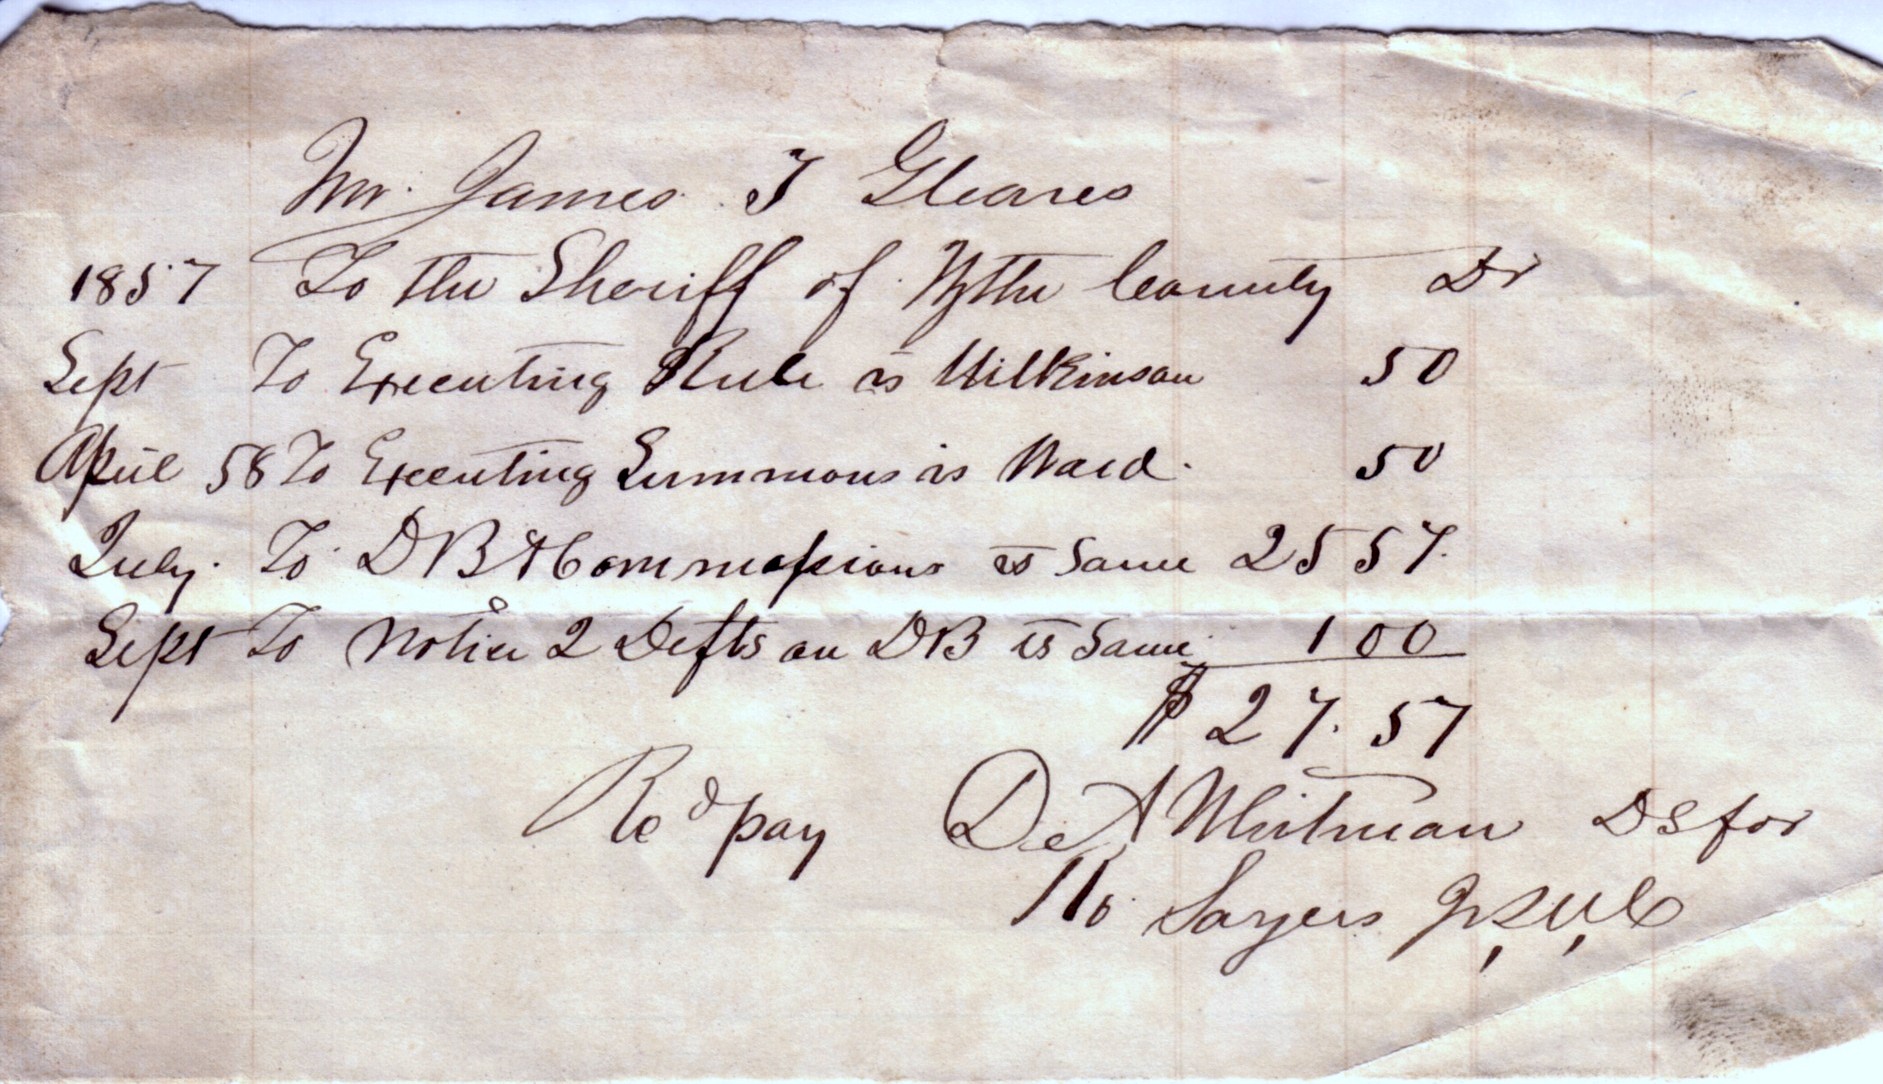 Mr. James T Gleaves
1857 To the Sheriff of Wythe County Dr
Sept To Executing Rule vs Wilkinson 50
April 58 To Executing Summons vs Ward. 50
July. To DB & Commissions vs Same 25 57.
Sept To Notice 2 Defts on DB vs Same 1 00
$ 27.57
Recd pay De A Whitman DS for
Ro. Sayers Jr S, W, C